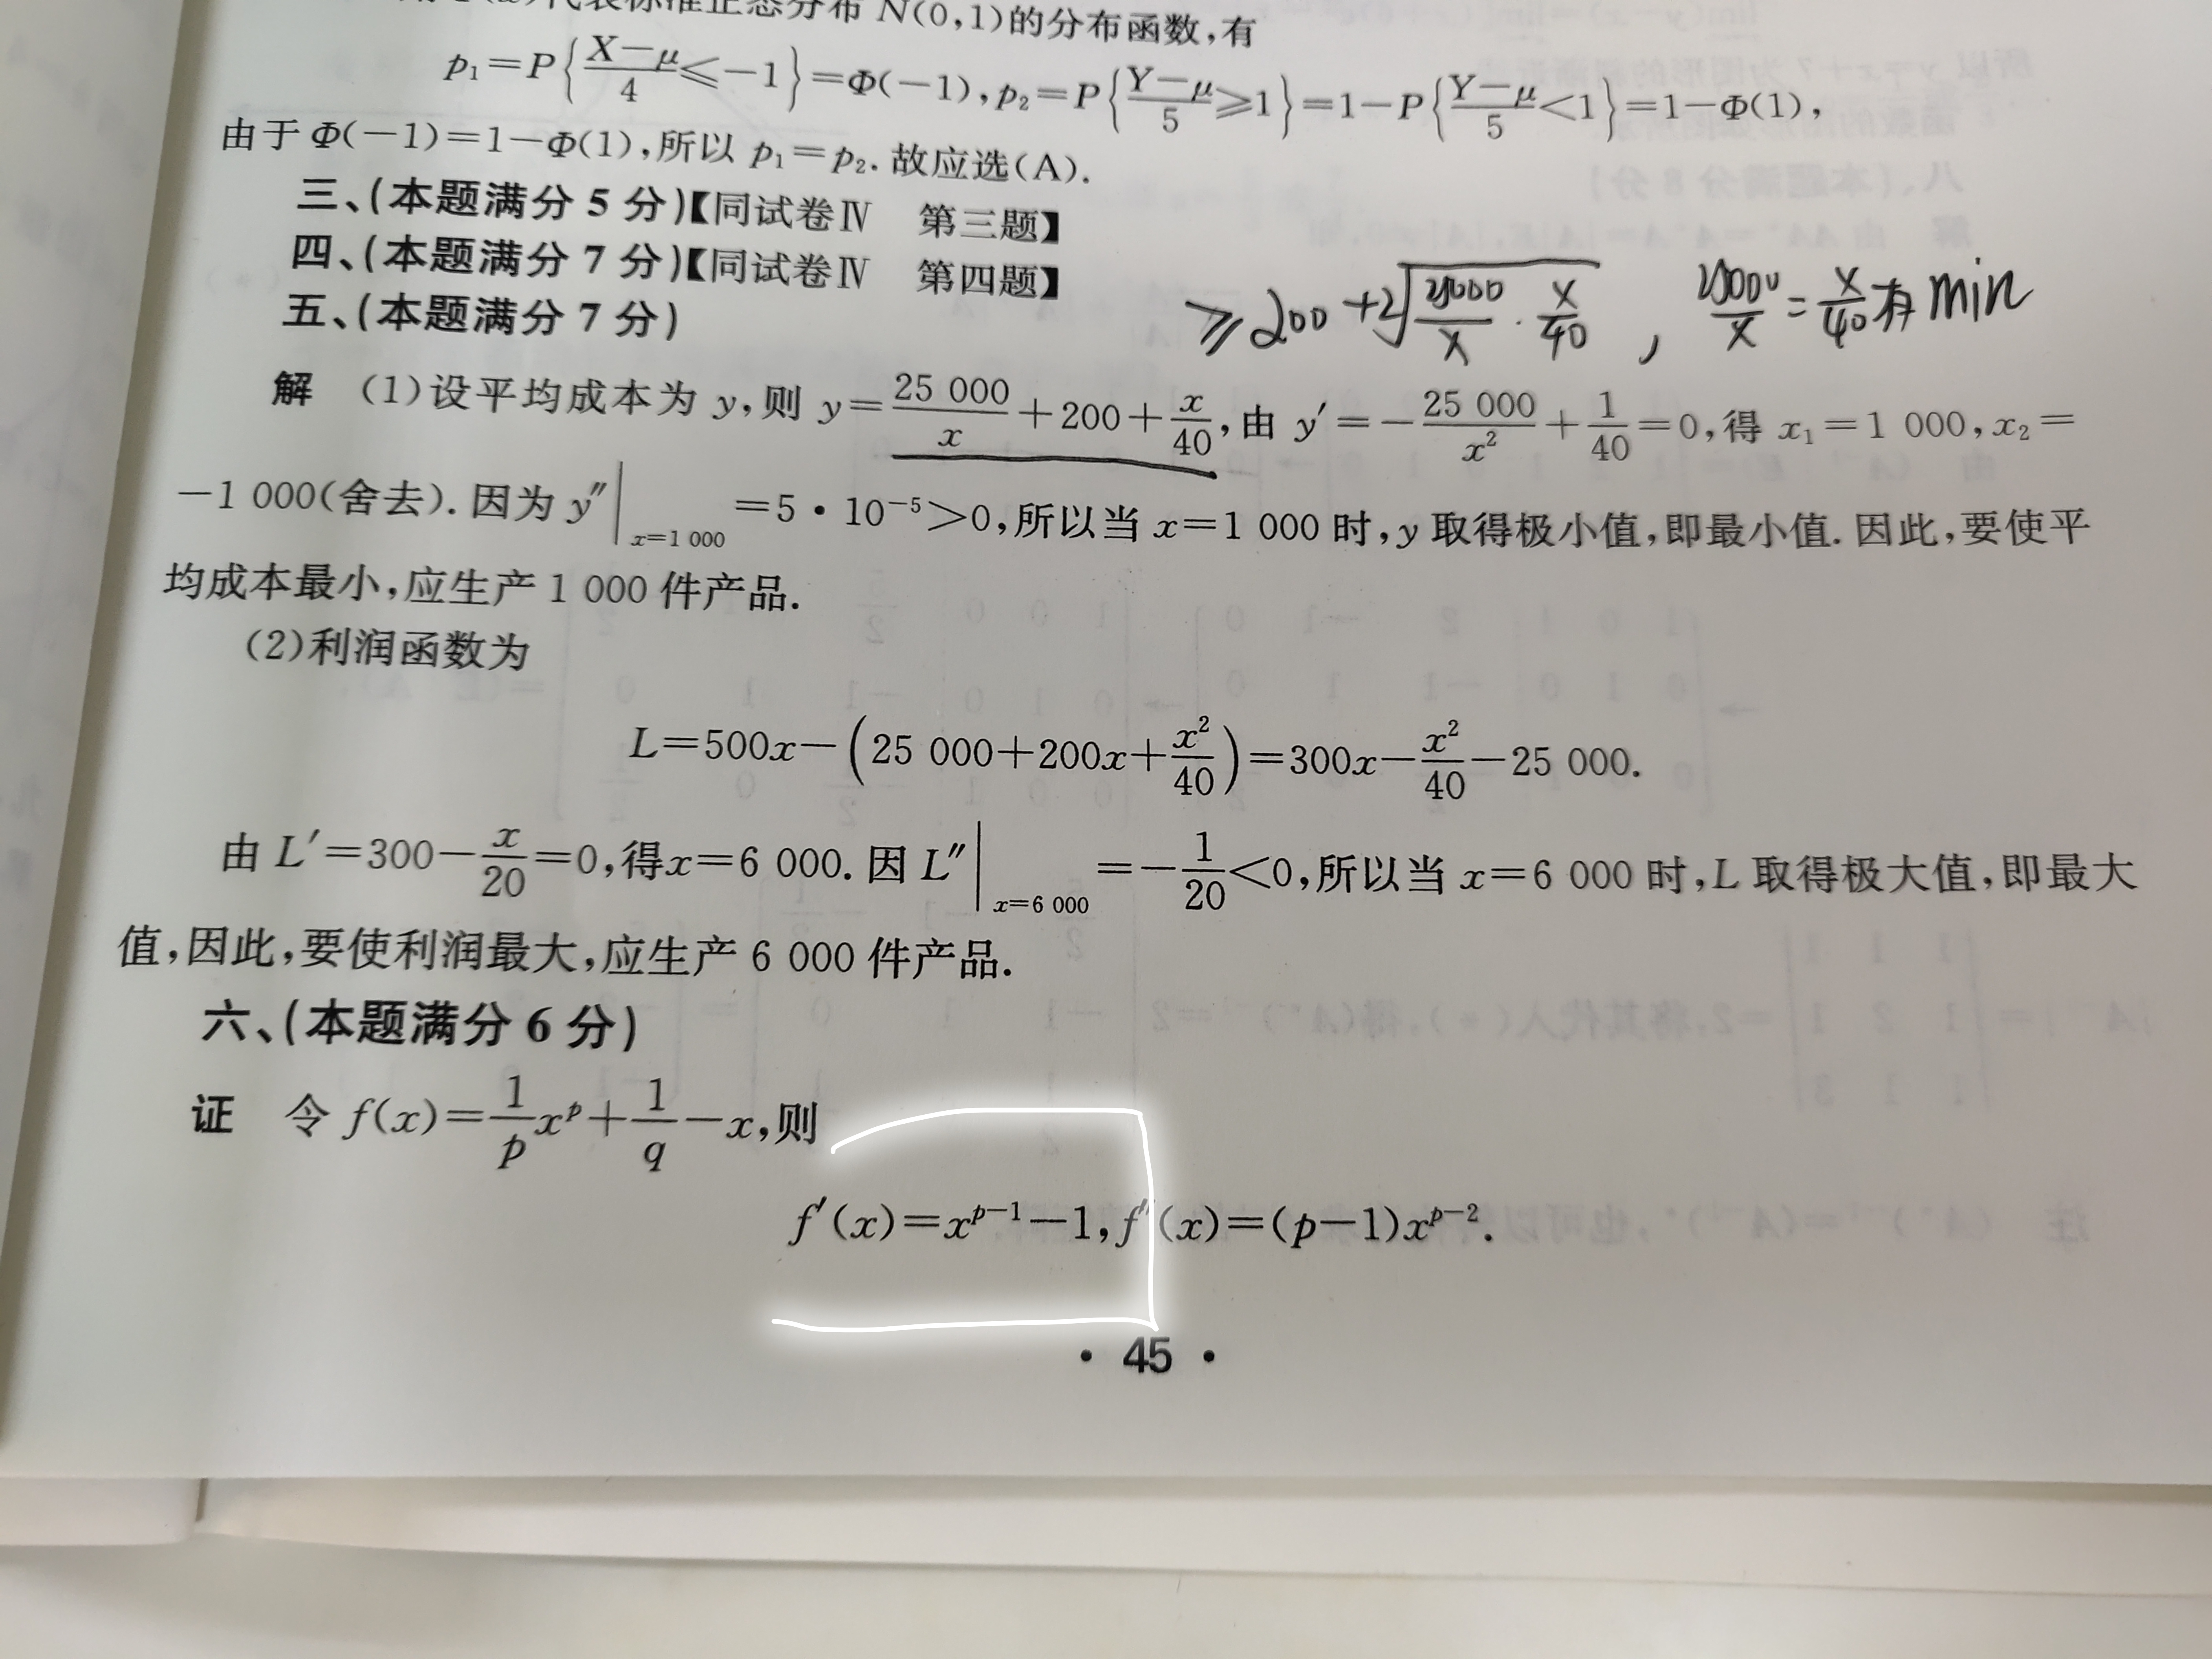 代表标准正态分布 N(0,1)的分布函数,有
p₁=P{(X−μ)/4≤−1}=Φ(−1),p₂=P{(Y−μ)/5≥1}=1−P{(Y−μ)/5<1}=1−Φ(1),
由于 Φ(−1)=1−Φ(1),所以 p₁=p₂. 故应选(A).
三、(本题满分 5 分)【同试卷Ⅳ 第三题】
四、(本题满分 7 分)【同试卷Ⅳ 第四题】
五、(本题满分 7 分)
≥200+2√(25000/x · x/40) , 25000/x = x/40 有 min
解 (1)设平均成本为 y,则 y=25 000/x+200+x/40,由 y′=−25 000/x²+1/40=0,得 x₁=1 000,x₂=
−1 000(舍去). 因为 y″|x=1 000=5·10⁻⁵>0,所以当 x=1 000 时,y 取得极小值,即最小值. 因此,要使平
均成本最小,应生产 1 000 件产品.
(2)利润函数为
L=500x−(25 000+200x+x²/40)=300x−x²/40−25 000.
由 L′=300−x/20=0,得x=6 000. 因 L″|x=6 000=−1/20<0,所以当 x=6 000 时,L 取得极大值,即最大
值,因此,要使利润最大,应生产 6 000 件产品.
六、(本题满分 6 分)
证 令 f(x)=1/p xᵖ+1/q−x,则
f′(x)=xᵖ⁻¹−1,f″(x)=(p−1)xᵖ⁻².
· 45 ·